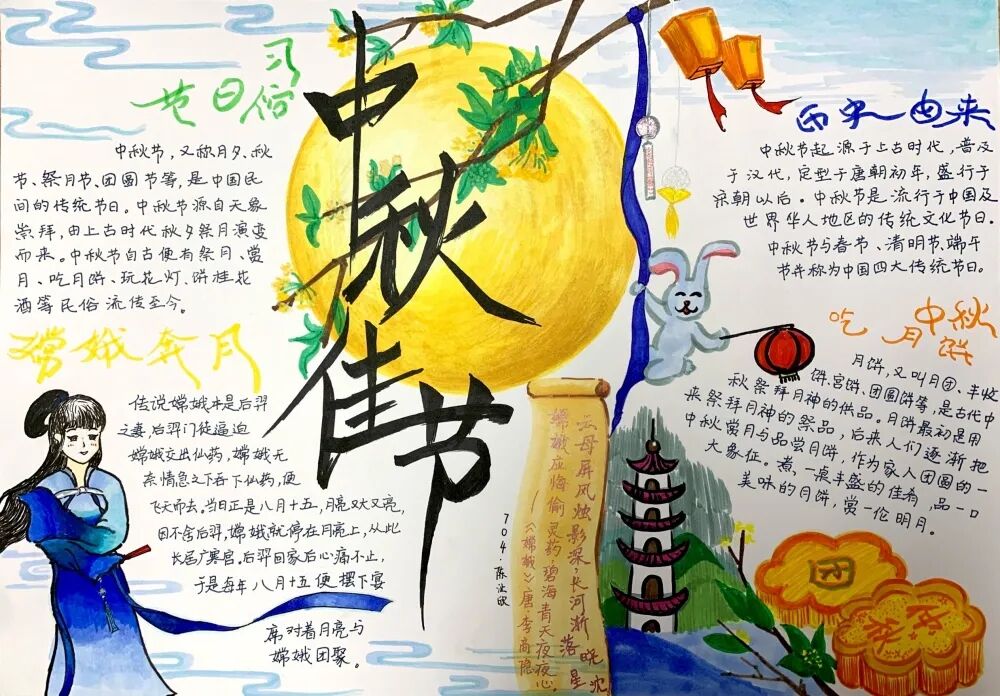 中秋佳节
节日习俗
中秋节，又称月夕、秋
节、祭月节、团圆节等，是中国民
间的传统节日。中秋节源自天象
崇拜，由上古时代秋夕祭月演变
而来。中秋节自古便有祭月、赏
月、吃月饼、玩花灯、饼桂花
酒等民俗流传至今。
嫦娥奔月
传说嫦娥本是后羿
之妻，后羿门徒逼迫
嫦娥交出仙药，嫦娥无
奈情急之下吞下仙药，便
飞天而去，当日正是八月十五，月亮又大又亮，
因不舍后羿，嫦娥就停在月亮上，从此
长居广寒宫，后羿回家后心痛不止，
于是每年八月十五便摆下宴
席对着月亮与
嫦娥团聚。
历史由来
中秋节起源于上古时代，普及
于汉代，定型于唐朝初年，盛行于
宗朝以后。中秋节是流行于中国及
世界华人地区的传统文化节日。
中秋节与春节、清明节、端午
节并称为中国四大传统节日。
吃中秋月饼
月饼，又叫月团、丰收
饼、宫饼、团圆饼等，是古代中
秋祭拜月神的供品。月饼最初是用
来祭拜月神的祭品，后来人们逐渐把
中秋赏月与品尝月饼，作为家人团圆的一
大象征。煮一桌丰盛的佳肴，品一口
美味的月饼，赏一伦明月。
云母屏风烛影深，长河渐落晓星沉
嫦娥应悔偷灵药，碧海青天夜夜心。
——《嫦娥》唐·李商隐
704·陈
团